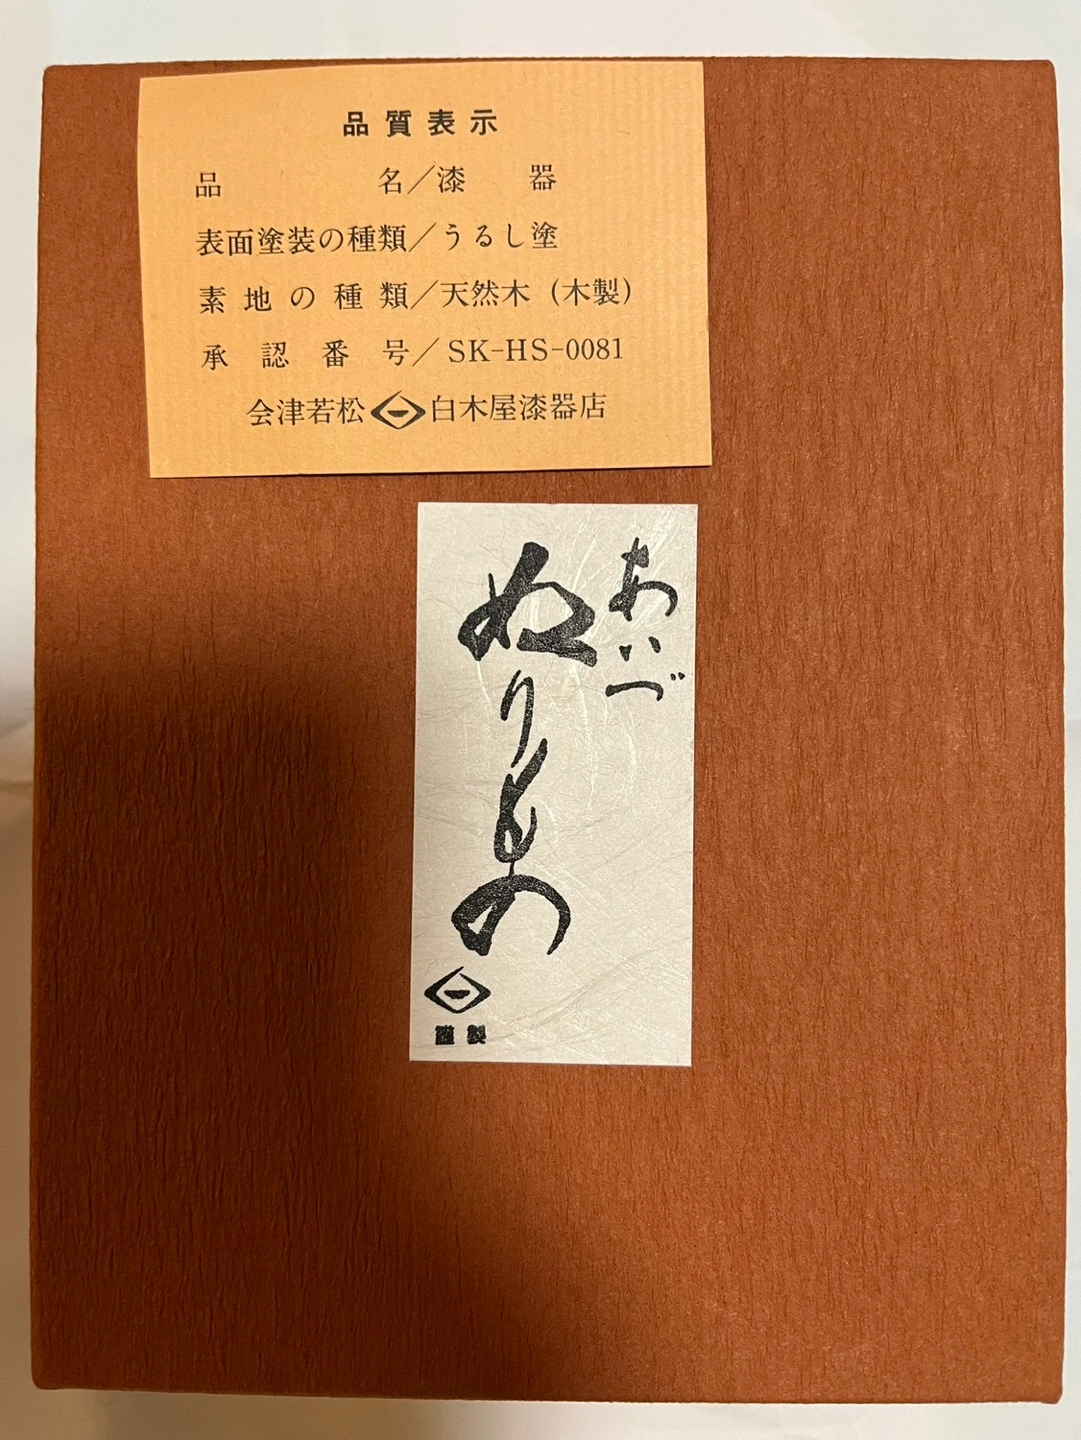 品質表示
品名／漆器
表面塗装の種類／うるし塗
素地の種類／天然木（木製）
承認番号／SK-HS-0081
会津若松 白木屋漆器店
あいづ
ぬりもの
謹製